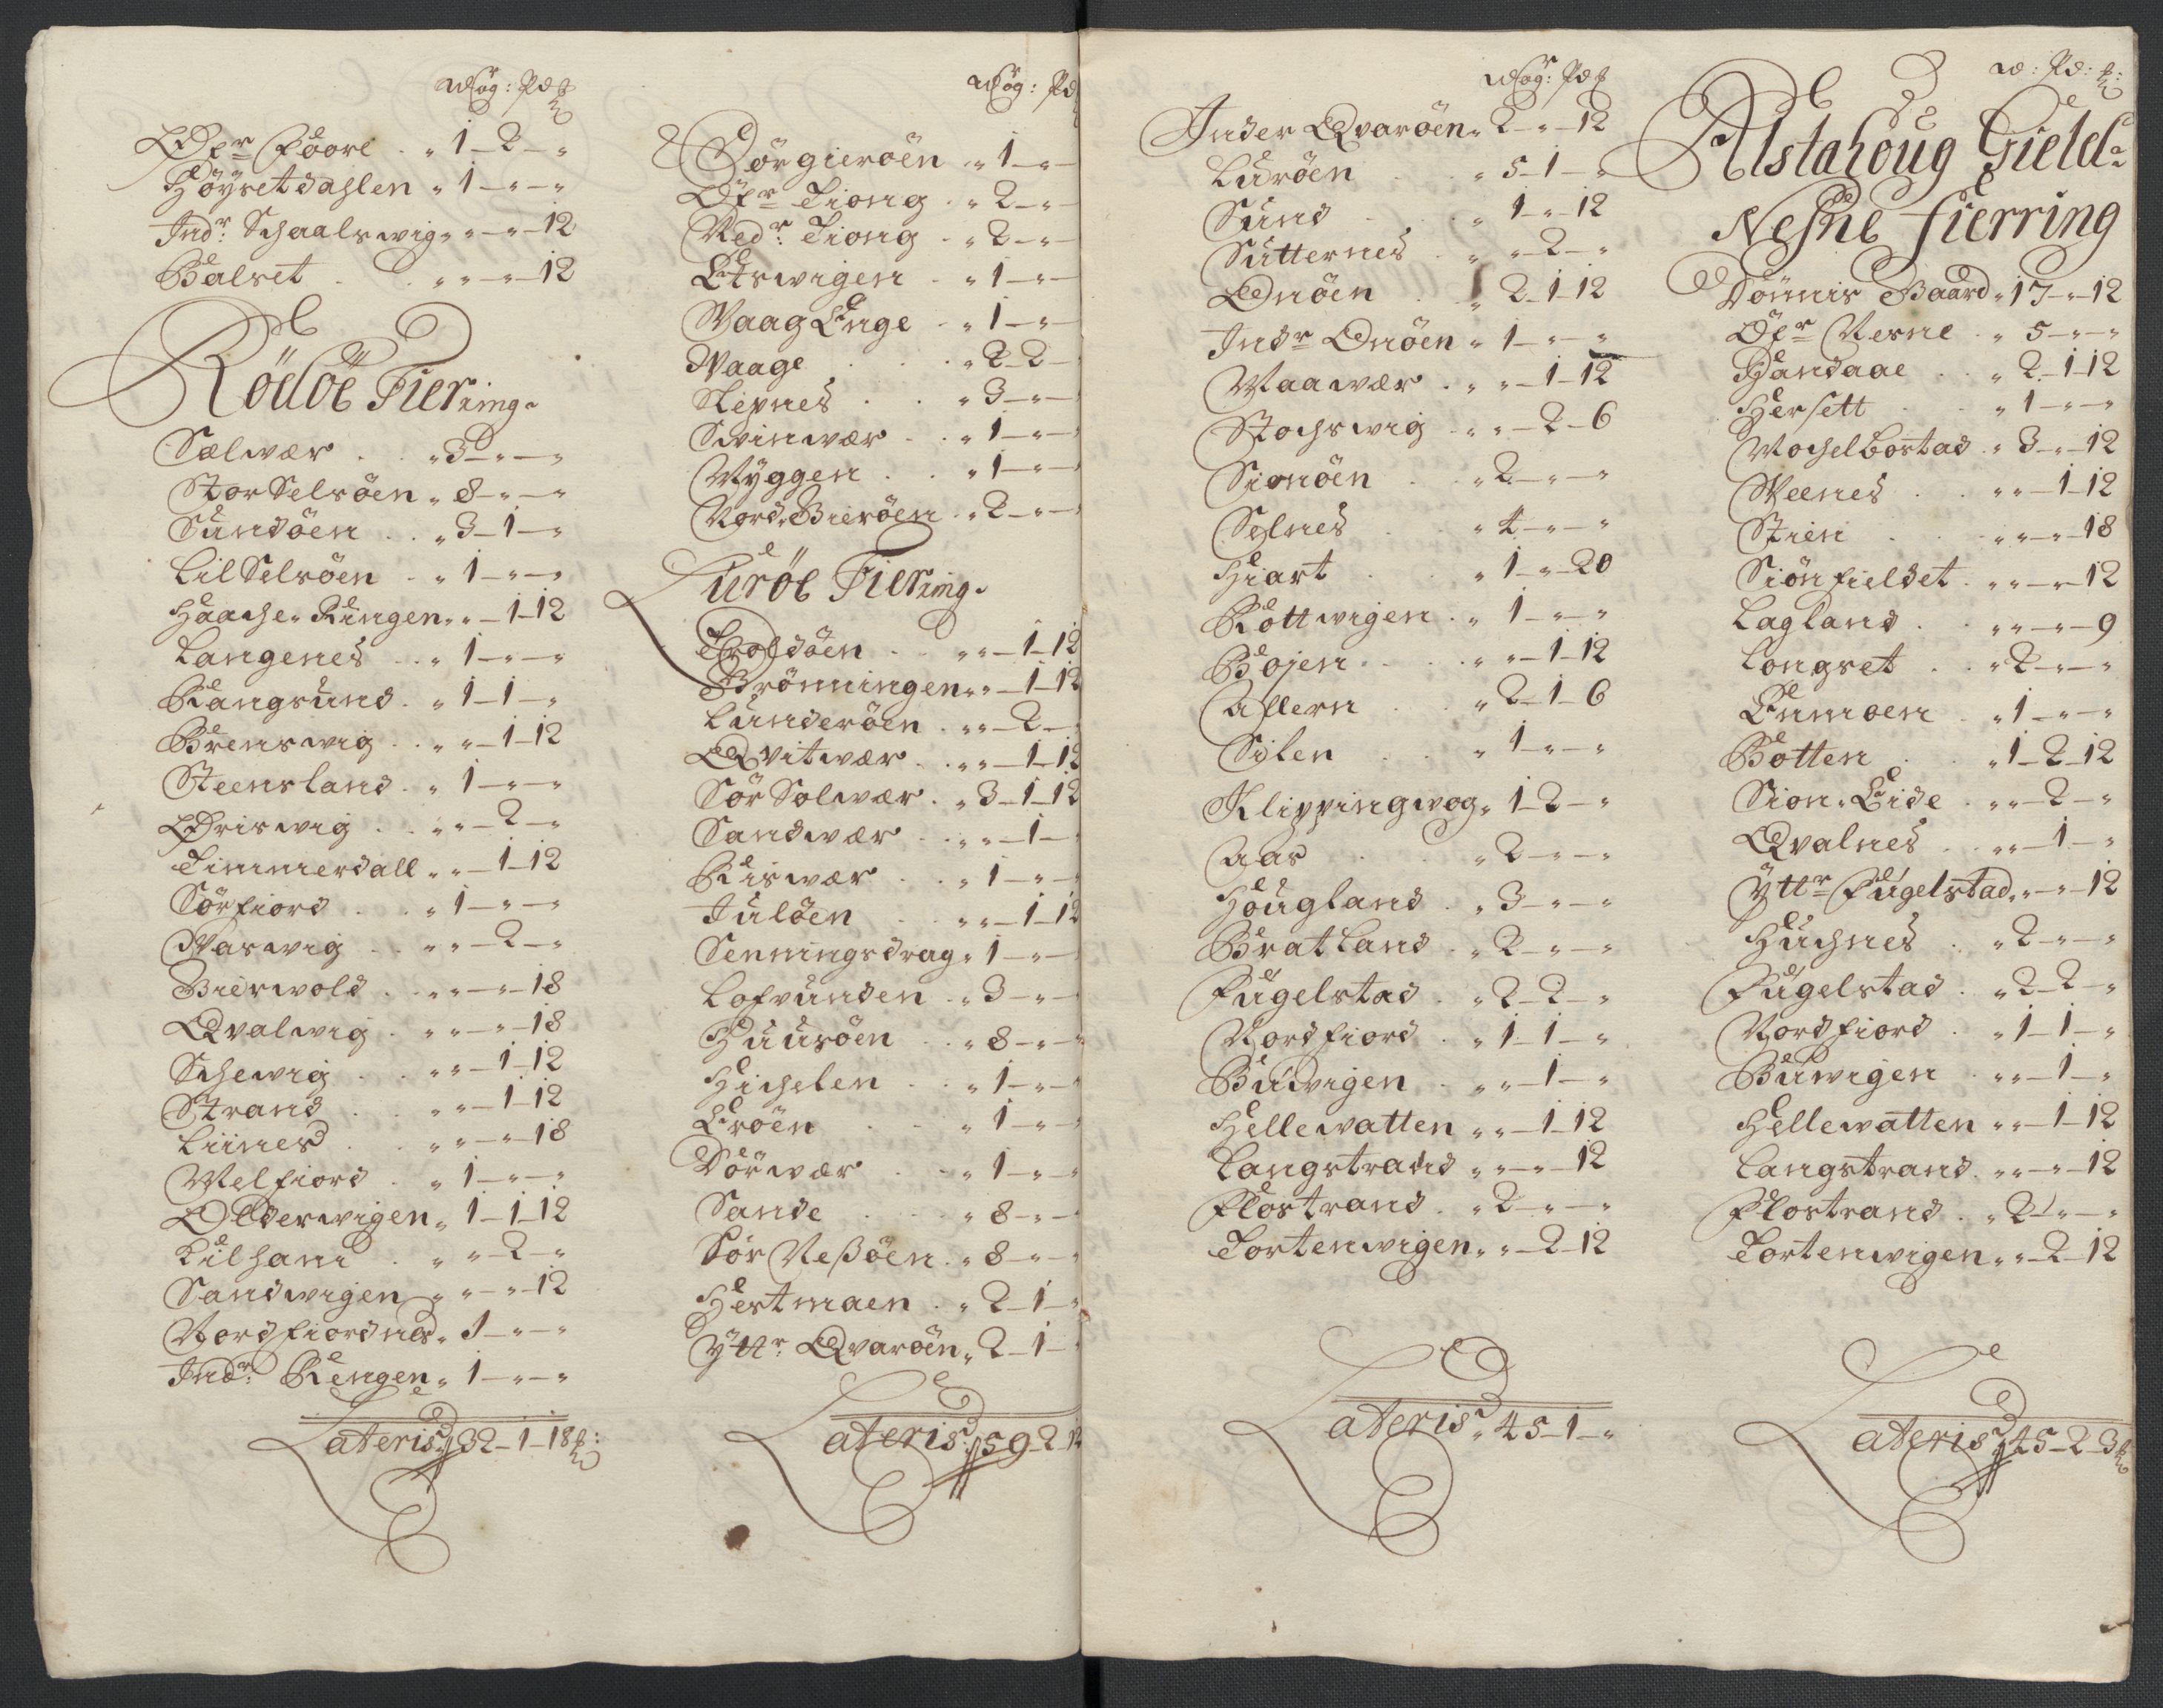 Wog: Pd ℔
Öfr Föore . „ 1 - 2 - „
Höÿsetdahlen „ 1 - „ - „
Indr: Schaalswig „ „ - „ - 12
Balset . . „ „ - „ - 12
Rödöe Fiering.
Sælwær . . „ 3 - „ - „
Stor Selsöen „ 8 - „ - „
Sundöen . . „ 3 - 1 - „
Lil Selsöen . „ 1 - „ - „
Haache Ringen „ „ - 1 - 12
Langenes . . „ 1 - „ - „
Rangsund . „ 1 - 1 - „
Brenswig . . „ „ - 1 - 12
Steensland . „ 1 - „ - „
Öriswig . . „ „ - 2 - „
Timmerdall „ „ - 1 - 12
Sörfiord . . „ 1 - „ - „
Waswig . . „ „ - 2 - „
Bierwold . „ „ - „ - 18
Qvalwig . „ „ - „ - 18
Schewig . . „ „ - 1 - 12
Strand . . „ „ - 1 - 12
Liines . . „ „ - „ - 18
Melfiord . „ 1 - „ - „
Olderwigen „ 1 - 1 - 12
Kilham . . „ „ - 2 - „
Sandwigen „ „ - „ - 12
Nordfiordnes „ 1 - „ - „
Indr: Rengen „ 1 - „ - „
Lateris „ 32 - 1 - 18 ℔:
Wog: Pd
Sör gieröen „ 1 - „ -
Öfr Tiong . „ 2 - „ -
Nedr: Tiong . „ 2 - „ -
Etswigen . „ 1 - „ -
Waag Enge . „ 1 - „ -
Waage . . „ 2 - 2 -
Skipnes . . „ 3 - „ -
Swinwær . . „ 1 - „ -
Myggen . . „ 1 - „ -
Nord Bieröen . „ 2 - „ -
Luröe Fiering.
Troldöen . . „ „ - 1 - 12
Brönningen „ „ - 1 - 12
Lunderöen . „ „ - 2 -
Qvitwær . „ „ - 1 - 12
Sör Solwær . „ 3 - 1 - 12
Sandwær . . „ „ - 1 -
Riswær . . „ 1 - „ -
Julöen . . „ „ - 1 - 12
Senningsdrag „ 1 - „ -
Lofvunden . „ 3 - „ -
Huusöen . . „ 8 - „ -
Hichelen . . „ 1 - „ -
Eröen . . „ 1 - „ -
Dörwær . . „ 1 - „ -
Sande . . „ 8 - „ -
Sör Neßöen . „ 8 - „ -
Hestmaen . „ 2 - 1 -
Yttr: Qvaröen „ 2 - 1 -
Lateris „ 59 2 - 12
Wog: Pd ℔
Inder Qvaröen „ 2 - „ - 12
Luröen . . „ 5 - 1 - „
Sund . . „ 1 - „ - 12
Sutternes . „ „ - 2 - „
Onöen . . „ 2 - 1 - 12
Indr Onöen „ 1 - „ - „
Maawær . „ „ - 1 - 12
Stochswig . „ „ - 2 - 6
Sionöen . . „ 2 - „ - „
Selnes . . „ 4 - „ - „
Hiart . . „ 1 - „ - 20
Kottwigen . „ 1 - „ - „
Bojen . . „ „ - 1 - 12
Allern . . „ 2 - 1 - 6
Silen . . „ 1 - „ - „
Klippingwog „ 1 - 2 - „
Aas . . „ 2 - „ - „
Hougland . „ 3 - „ - „
Bratland . „ 2 - „ - „
Fugelstad . „ 2 - 2 - „
Nordfiord . „ 1 - 1 - „
Buwigen . „ „ - 1 - „
Hellewatten „ „ - 1 - 12
Langstrand „ „ - „ - 12
Flostrand . „ 2 - „ - „
Tortenwigen „ „ - 2 - 12
Lateris „ 45 - 1 - „
w: Pd: ℔:
Alstahoug Gield:
Nesne Fierring
Dönnis Gaard „ 17 - „ - 12
Öfr Nesne . „ 5 - „ - „
Handaae . . „ 2 - 1 - 12
Hersett . . „ 1 - „ - „
Mochelbostad . „ 3 - „ - 12
Weenes . . „ „ - 1 - 12
Stien . . „ „ - „ - 18
Siönfieldet . „ „ - „ - 12
Lagland . „ „ - „ - 9
Longset . . „ 2 - „ - „
Enmoen . „ 1 - „ - „
Botten . . „ 1 - 2 - 12
Sion Eide . „ „ - 2 - „
Qvalnes . . „ „ - 1 - „
Yttr Fugelstad „ „ - „ - 12
Huchnes . „ 2 - „ - „
Fugelstad . „ 2 - 2 - „
Nordfiord . „ 1 - 1 - „
Buwigen . „ „ - 1 - „
Hellewatten „ „ - 1 - 12
Langstrand „ „ - „ - 12
Flostrand . „ 2 - „ - „
Tortenwigen „ „ - 2 - 12
Lateris „ 45 - 2 - 3 ℔